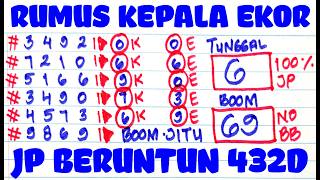 RUMUS KEPALA EKOR
# 3 4 9 2 0 K 0 E TUNGGAL
# 7 2 1 0 6 K 6 E 6 100%
# 5 1 6 6 9 K 0 E JP
# 3 4 9 0 7 K 3 E BOOM
# 4 5 7 3 6 K 9 E 69 NO
# 9 8 6 9 BOOM JITU BB
JP BERUNTUN 432D